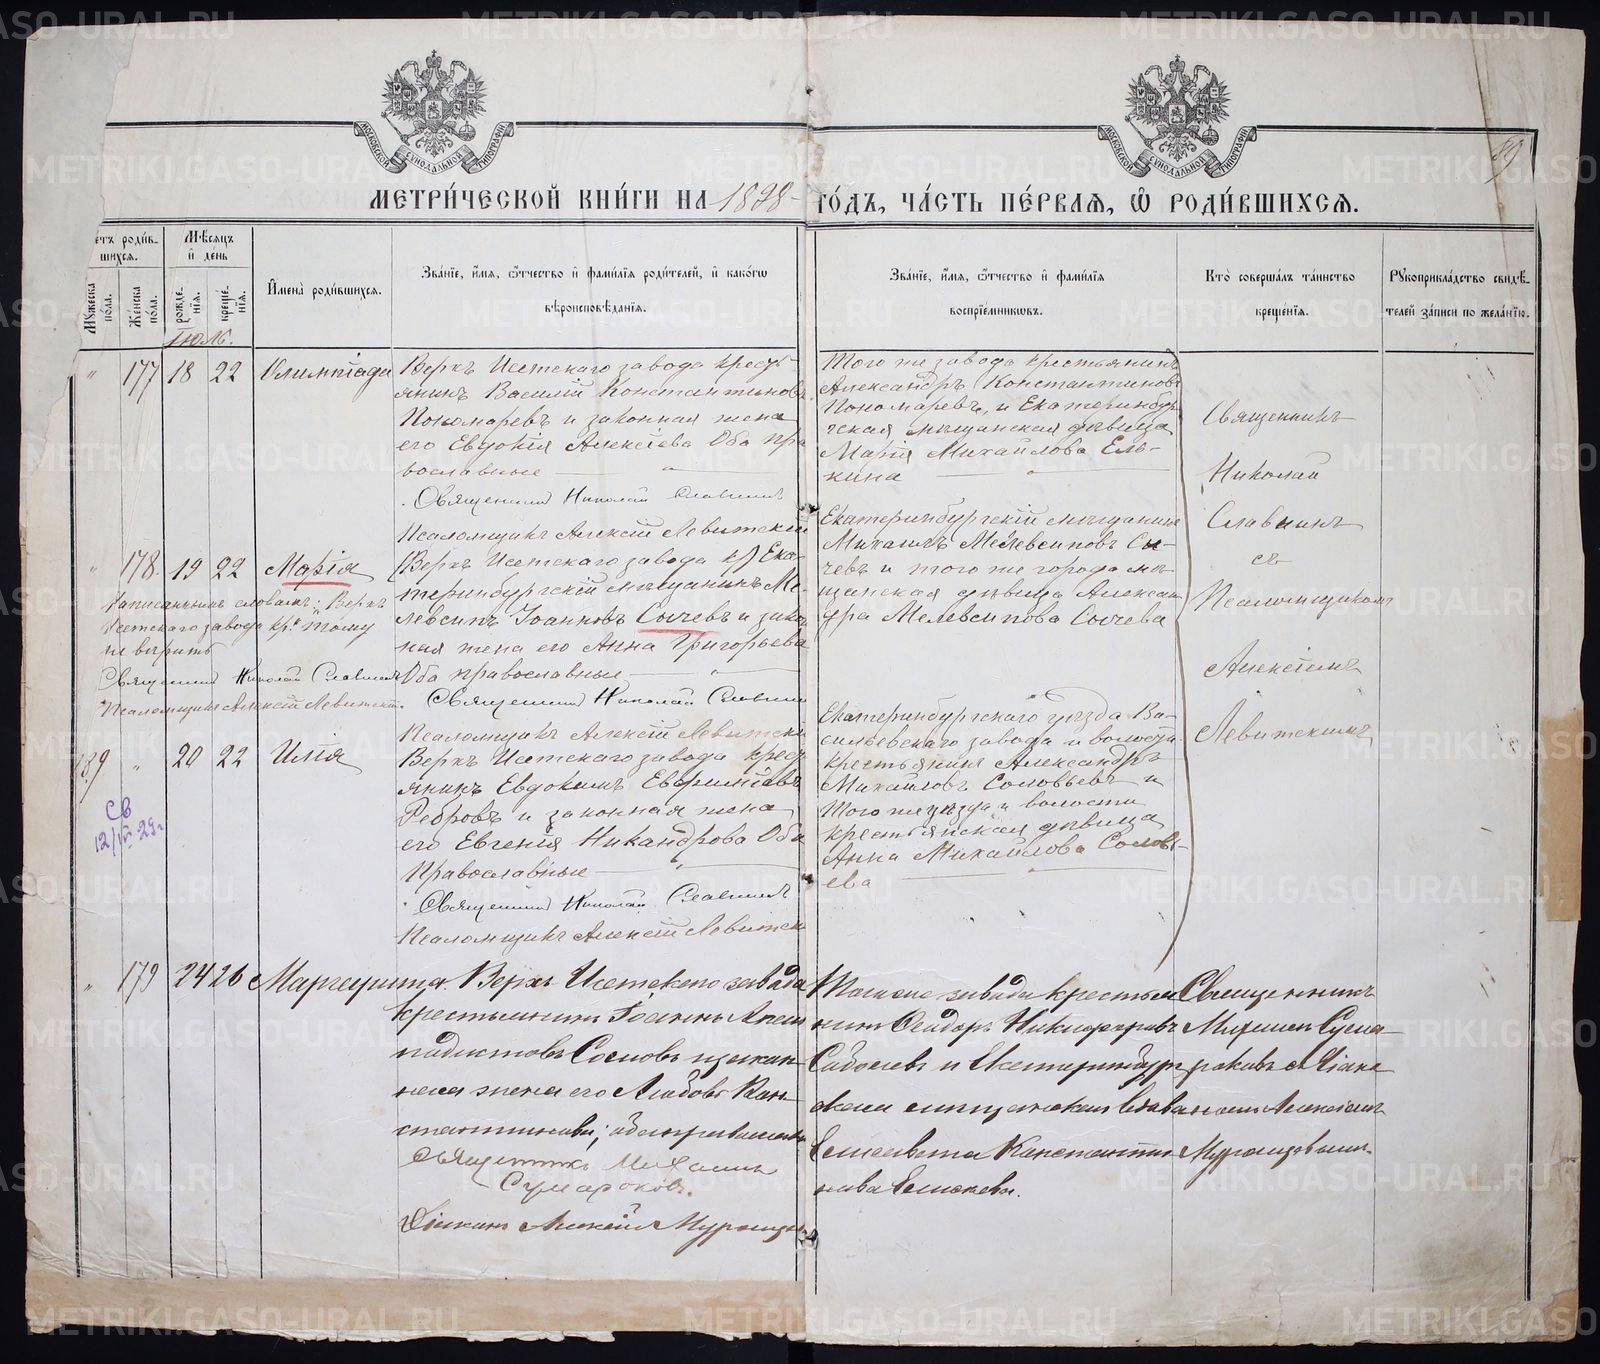 МЕТРИ́ЧЕСКОЙ КНИ́ГИ НА 1898 ГО́ДЪ, ЧА́СТЬ ПЕ́РВАЯ, Ѽ РОДИ́ВШИХСЯ.
89
МОСКОВСКОЙ СѴНОДАЛЬНОЙ ТИПОГРАФІИ
МОСКОВСКОЙ СѴНОДАЛЬНОЙ ТИПОГРАФІИ
етъ роди́в-
шихся.
Мꙋ́жеска по́ла.
Же́нска по́ла.
Мѣ́сяцъ и҆ де́нь
рожде́-
нїя.
креще́-
нїя.
Іюль.
И҆мена̀ роди́вшихся.
Зва́нїе, и҆́мя, ѻ҆́тчество и҆ фами́лїя роди́телей, и҆ како́гѡ
вѣроисповѣ́данїя.
Зва́нїе, и҆́мя, ѻ҆́тчество и҆ фами́лїя
воспрїе́мникѡвъ.
Кто̀ соверша́лъ та́инство
креще́нїя.
Рꙋкоприкла́дство свидѣ́-
телей за́писи по жела́нїю.
" 177 18 22 Олимпіада
Верхъ Исетскаго завода кресть-
янинъ Василій Константиновъ
Пономаревъ и законная жена
его Евдокія Алексіева Оба пра
вославные
Священникъ Николай Славнинъ
Псаломщикъ Алексій Левитскій
Того же завода крестьянинъ
Александръ Константиновъ
Пономаревъ, и Екатеринбур
гская мѣщанская дѣвица
Марія Михайлова Ель-
кина
Священникъ
Николай
Славнинъ
съ
Псаломщикомъ
Алексіемъ
Левитскимъ
" 178. 19 22 Марія
(Верхъ Исетскаго завода кр) Ека-
теринбургскій мѣщанинъ Ме-
левсипъ Іоанновъ Сычевъ и закон
ная жена его Анна Григорьева
Оба православные
Священникъ Николай Славнинъ
Псаломщикъ Алексій Левитскій
Екатеринбургскій мѣщанинъ
Михаилъ Мелевсиповъ Сы-
чевъ и того же города мѣ-
щанская дѣвица Алексан
дра Мелевсипова Сычева
Написаннымъ словамъ: "Верхъ
Исетскаго завода кр." тому
не вѣрить
Священникъ Николай Славнинъ
Псаломщикъ Алексій Левитскій.
189 " 20 22 Илія
Верхъ Исетскаго завода крест
янинъ Евдокимъ Евфиміевъ
Ребровъ и законная жена
его Евгенія Никандрова Оба
Православные
Священникъ Николай Славнинъ
Псаломщикъ Алексій Левитскі
Екатеринбургскаго уѣзда Ва-
сильевскаго завода и волости
крестьянинъ Александръ
Михайловъ Соловьевъ и
Того же уѣзда и волости
крестьянская дѣвица
Анна Михайлова Соловь-
ева
Св
" 179 24 26 Маргарита.
Верхъ Исетскаго завода
крестьянинъ Іоаннъ
Сосновъ и закон-
ная жена его Любовь Кон-
стантинова; оба православн
Священникъ Михаилъ
Сумароковъ.
Діаконъ Алексій
Того же завода крестья
нинъ Ѳеодоръ Никифоровъ
и Екатеринбург
ская мѣщанская
Елисавета Констант
нова
Священникъ
Михаилъ Сума
роковъ съ Діако
номъ Алексіемъ